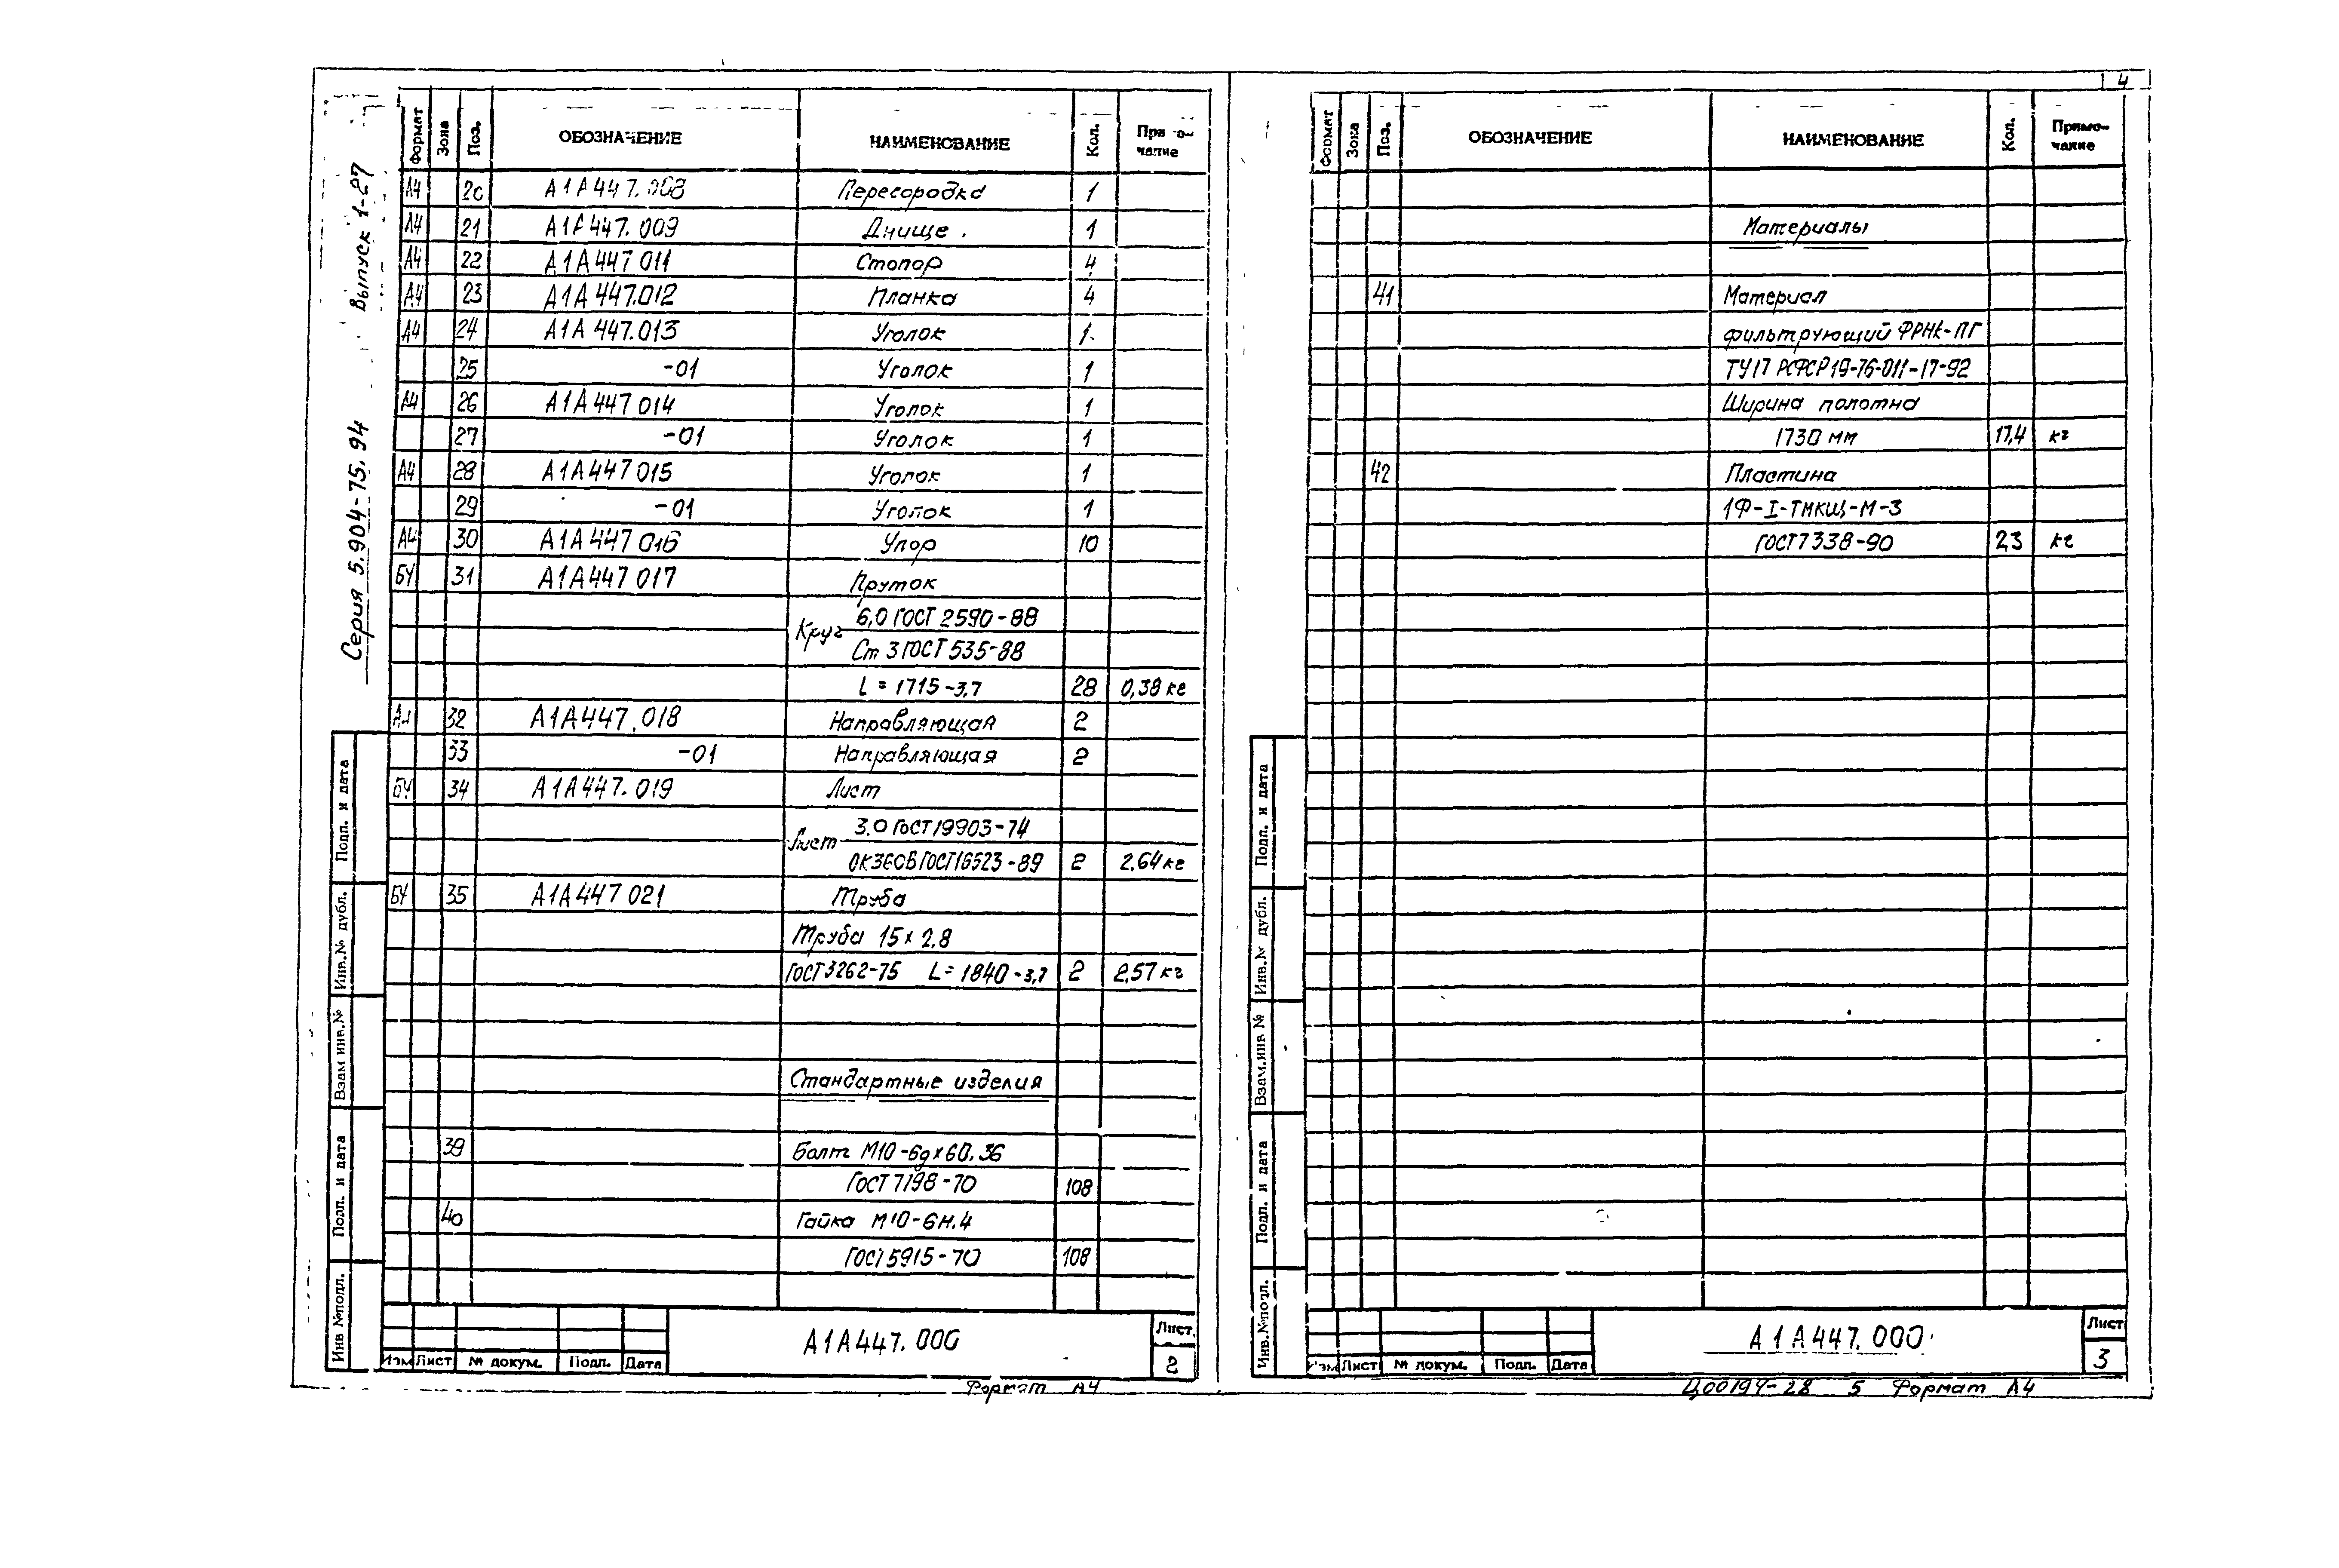 4
Серия 5.904-75.94 Выпуск 1-27
Формат Зона Поз. ОБОЗНАЧЕНИЕ НАИМЕНОВАНИЕ Кол.
А4 20 А1А447.008 Перегородка 1
А4 21 А1А447.009 Днище 1
А4 22 А1А447 011 Стопор 4
А4 23 А1А 447.012 Планка 4
А4 24 А1А 447.013 Уголок 1
25 -01 Уголок 1
А4 26 А1А447 014 Уголок 1
27 -01 Уголок 1
А4 28 А1А447 015 Уголок 1
29 -01 Уголок 1
А4 30 А1А447 016 Упор 10
БЧ 31 А1А447 017 Пруток
Круг 6,0 ГОСТ 2590-88
Ст 3 ГОСТ 535-88
L = 1715 -3,7 28 0,38 кг
32 А1А447.018 Направляющая 2
33 -01 Направляющая 2
БЧ 34 А1А447.019 Лист
Лист 3,0 ГОСТ 19903-74
ОК360В ГОСТ 16523-89 2 2,64 кг
БЧ 35 А1А447 021 Труба
Труба 15×2,8
ГОСТ 3262-75 L = 1840 -3,7 2 2,57 кг
Стандартные изделия
39 Болт М10-6g×60.36
ГОСТ 7798-70 108
40 Гайка М10-6Н.4
ГОСТ 5915-70 108
Подп. и дата
Инв.№ дубл.
Взам инв.№
Подп. и дата
Инв №подл.
Изм Лист № докум. Подп. Дата
А1А447.000
Лист
2
Формат А4
Формат Зона Поз. ОБОЗНАЧЕНИЕ НАИМЕНОВАНИЕ Кол. Примечание
Материалы
41 Материал
фильтрующий ФРНК-ПГ
ТУ17 РСФСР 19-76-011-17-92
Ширина полотна
1730 мм 17,4 кг
42 Пластина
1Ф-I-ТМКЩ-М-3
ГОСТ 7338-90 2,3 кг
Подп. и дата
Инв.№ дубл.
Взам.инв №
Подп. и дата
Инв.№подл.
Изм Лист № докум. Подп. Дата
А1А447.000
Лист
3
Ц00194-28 5 Формат А4